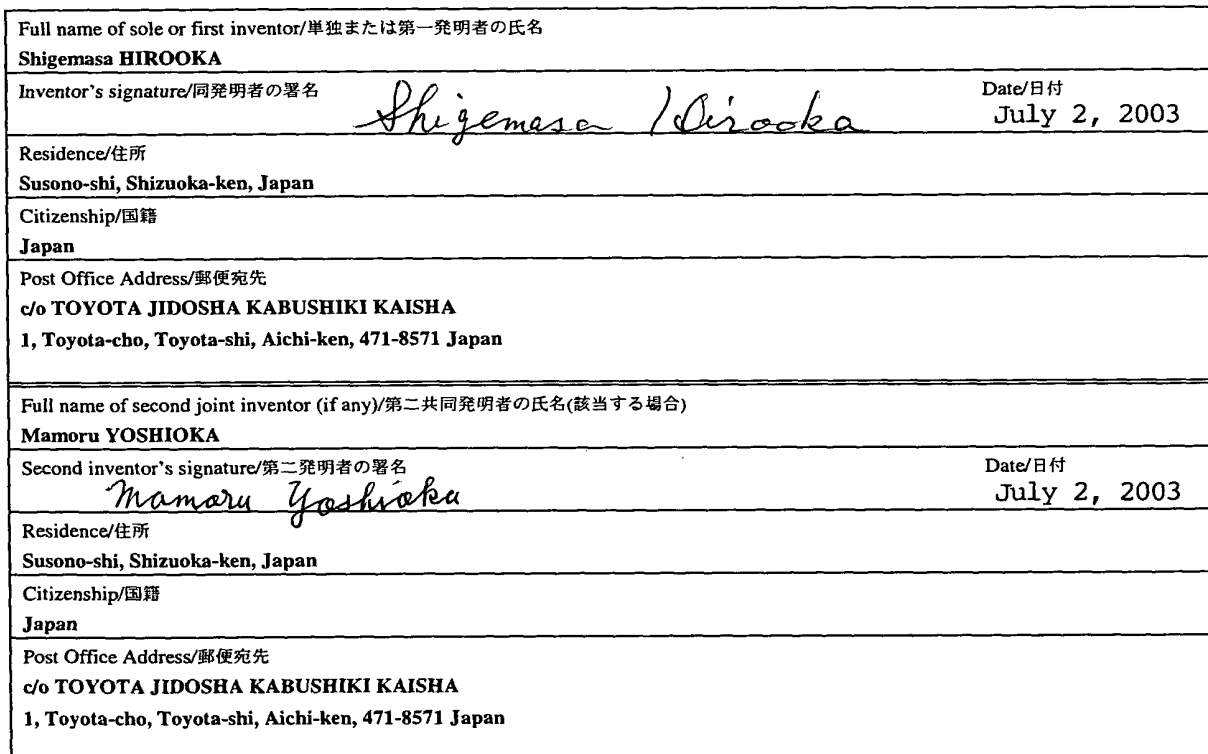 Full name of sole or first inventor/単独または第一発明者の氏名
Shigemasa HIROOKA
Inventor's signature/同発明者の署名 Shigemasa Hirooka Date/日付
July 2, 2003
Residence/住所
Susono-shi, Shizuoka-ken, Japan
Citizenship/国籍
Japan
Post Office Address/郵便宛先
c/o TOYOTA JIDOSHA KABUSHIKI KAISHA
1, Toyota-cho, Toyota-shi, Aichi-ken, 471-8571 Japan
Full name of second joint inventor (if any)/第二共同発明者の氏名(該当する場合)
Mamoru YOSHIOKA
Second inventor's signature/第二発明者の署名 Date/日付
Mamoru Yoshioka July 2, 2003
Residence/住所
Susono-shi, Shizuoka-ken, Japan
Citizenship/国籍
Japan
Post Office Address/郵便宛先
c/o TOYOTA JIDOSHA KABUSHIKI KAISHA
1, Toyota-cho, Toyota-shi, Aichi-ken, 471-8571 Japan